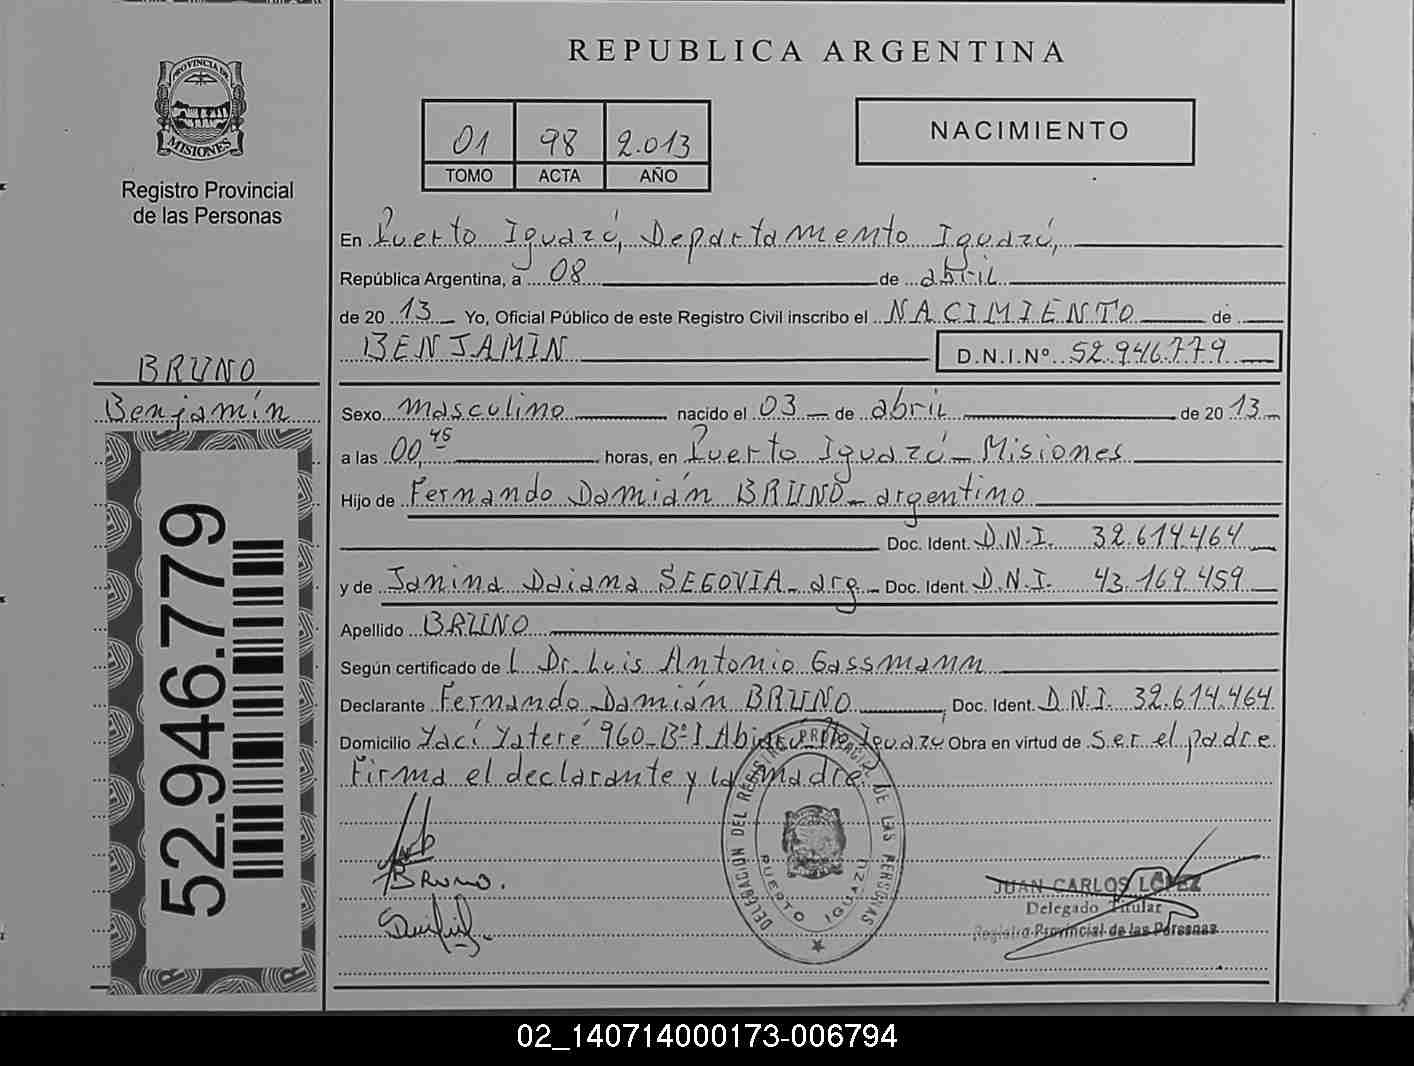 REPUBLICA ARGENTINA
PROVINCIA DE
MISIONES
Registro Provincial
de las Personas
01 98 2.013
TOMO ACTA AÑO
NACIMIENTO
En Puerto Iguazú, Departamento Iguazú,
República Argentina, a 08 de abril
de 20 13 Yo, Oficial Público de este Registro Civil inscribo el NACIMIENTO de
BENJAMIN D.N.I.Nº 52.946.779
BRUNO
Benjamín
52.946.779
Sexo masculino nacido el 03 de abril de 20 13
a las 00,45 horas, en Puerto Iguazú - Misiones
Hijo de Fernando Damián BRUNO - argentino
Doc. Ident. D.N.I. 32.614.464
y de Janina Daiana SEGOVIA - arg Doc. Ident. D.N.I. 43.169.459
Apellido BRUNO
Según certificado de L Dr. Luis Antonio Gassmann
Declarante Fernando Damián BRUNO, Doc. Ident. D.N.I. 32.614.464
Domicilio Yací Yateré 960 - Bº 1 Pto Iguazú Obra en virtud de ser el padre
Firma el declarante y la madre
BRUNO.
DELEGACION DEL REGISTRO PROVINCIAL DE LAS PERSONAS
PUERTO IGUAZU
JUAN CARLOS LOPEZ
Delegado Titular
Registro Provincial de las Personas
02_140714000173-006794